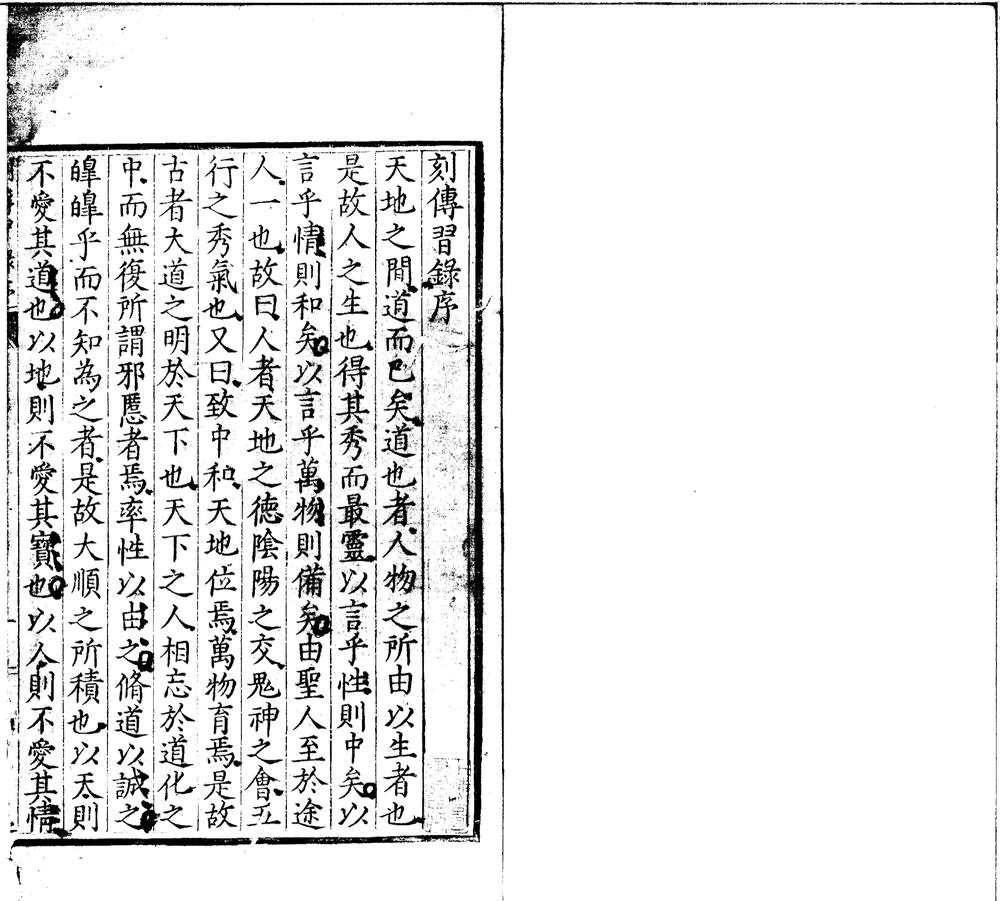 刻傳習錄序
天地之間道而已矣道也者人物之所由以生者也
是故人之生也得其秀而最靈以言乎性則中矣以
言乎情則和矣以言乎萬物則備矣由聖人至於途
人一也故曰人者天地之德陰陽之交鬼神之會五
行之秀氣也又曰致中和天地位焉萬物育焉是故
古者大道之明於天下也天下之人相忘於道化之
中而無復所謂邪慝者焉率性以由之脩道以誠之
皥皥乎而不知為之者是故大順之所積也以天則
不愛其道也以地則不愛其寶也以人則不愛其情